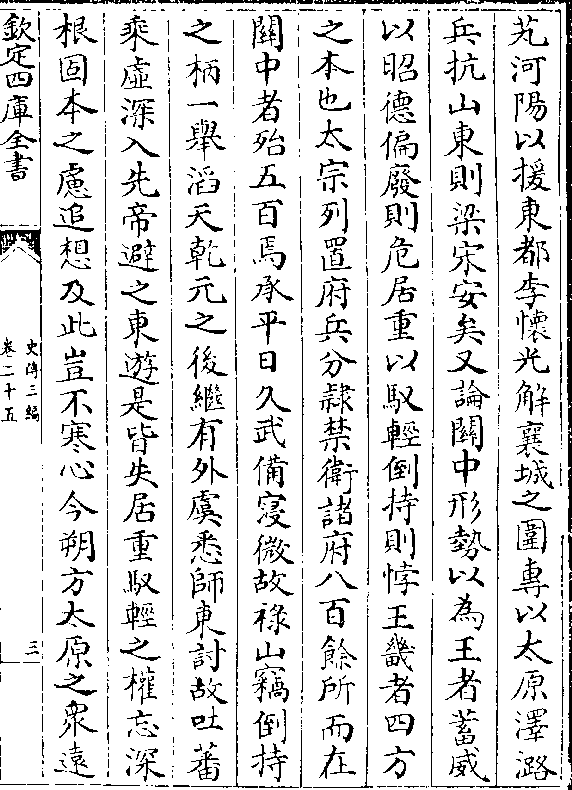 芃河陽以援東都李懷光解襄城之圍專以太原澤潞
兵抗山東則梁宋安矣又論關中形勢以為王者蓄威
以昭德偏廢則危居重以馭輕倒持則悖王畿者四方
之本也太宗列置府兵分隸禁衛諸府八百餘所而在
關中者殆五百焉承平日久武備寖微故祿山竊倒持
之柄一舉滔天乾元之後繼有外虞悉師東討故吐蕃
乘虛深入先帝避之東遊是皆失居重馭輕之權忘深
根固本之慮追想及此豈不寒心今朔方太原之衆遠
欽定四庫全書
史傳三編
卷二十五
三